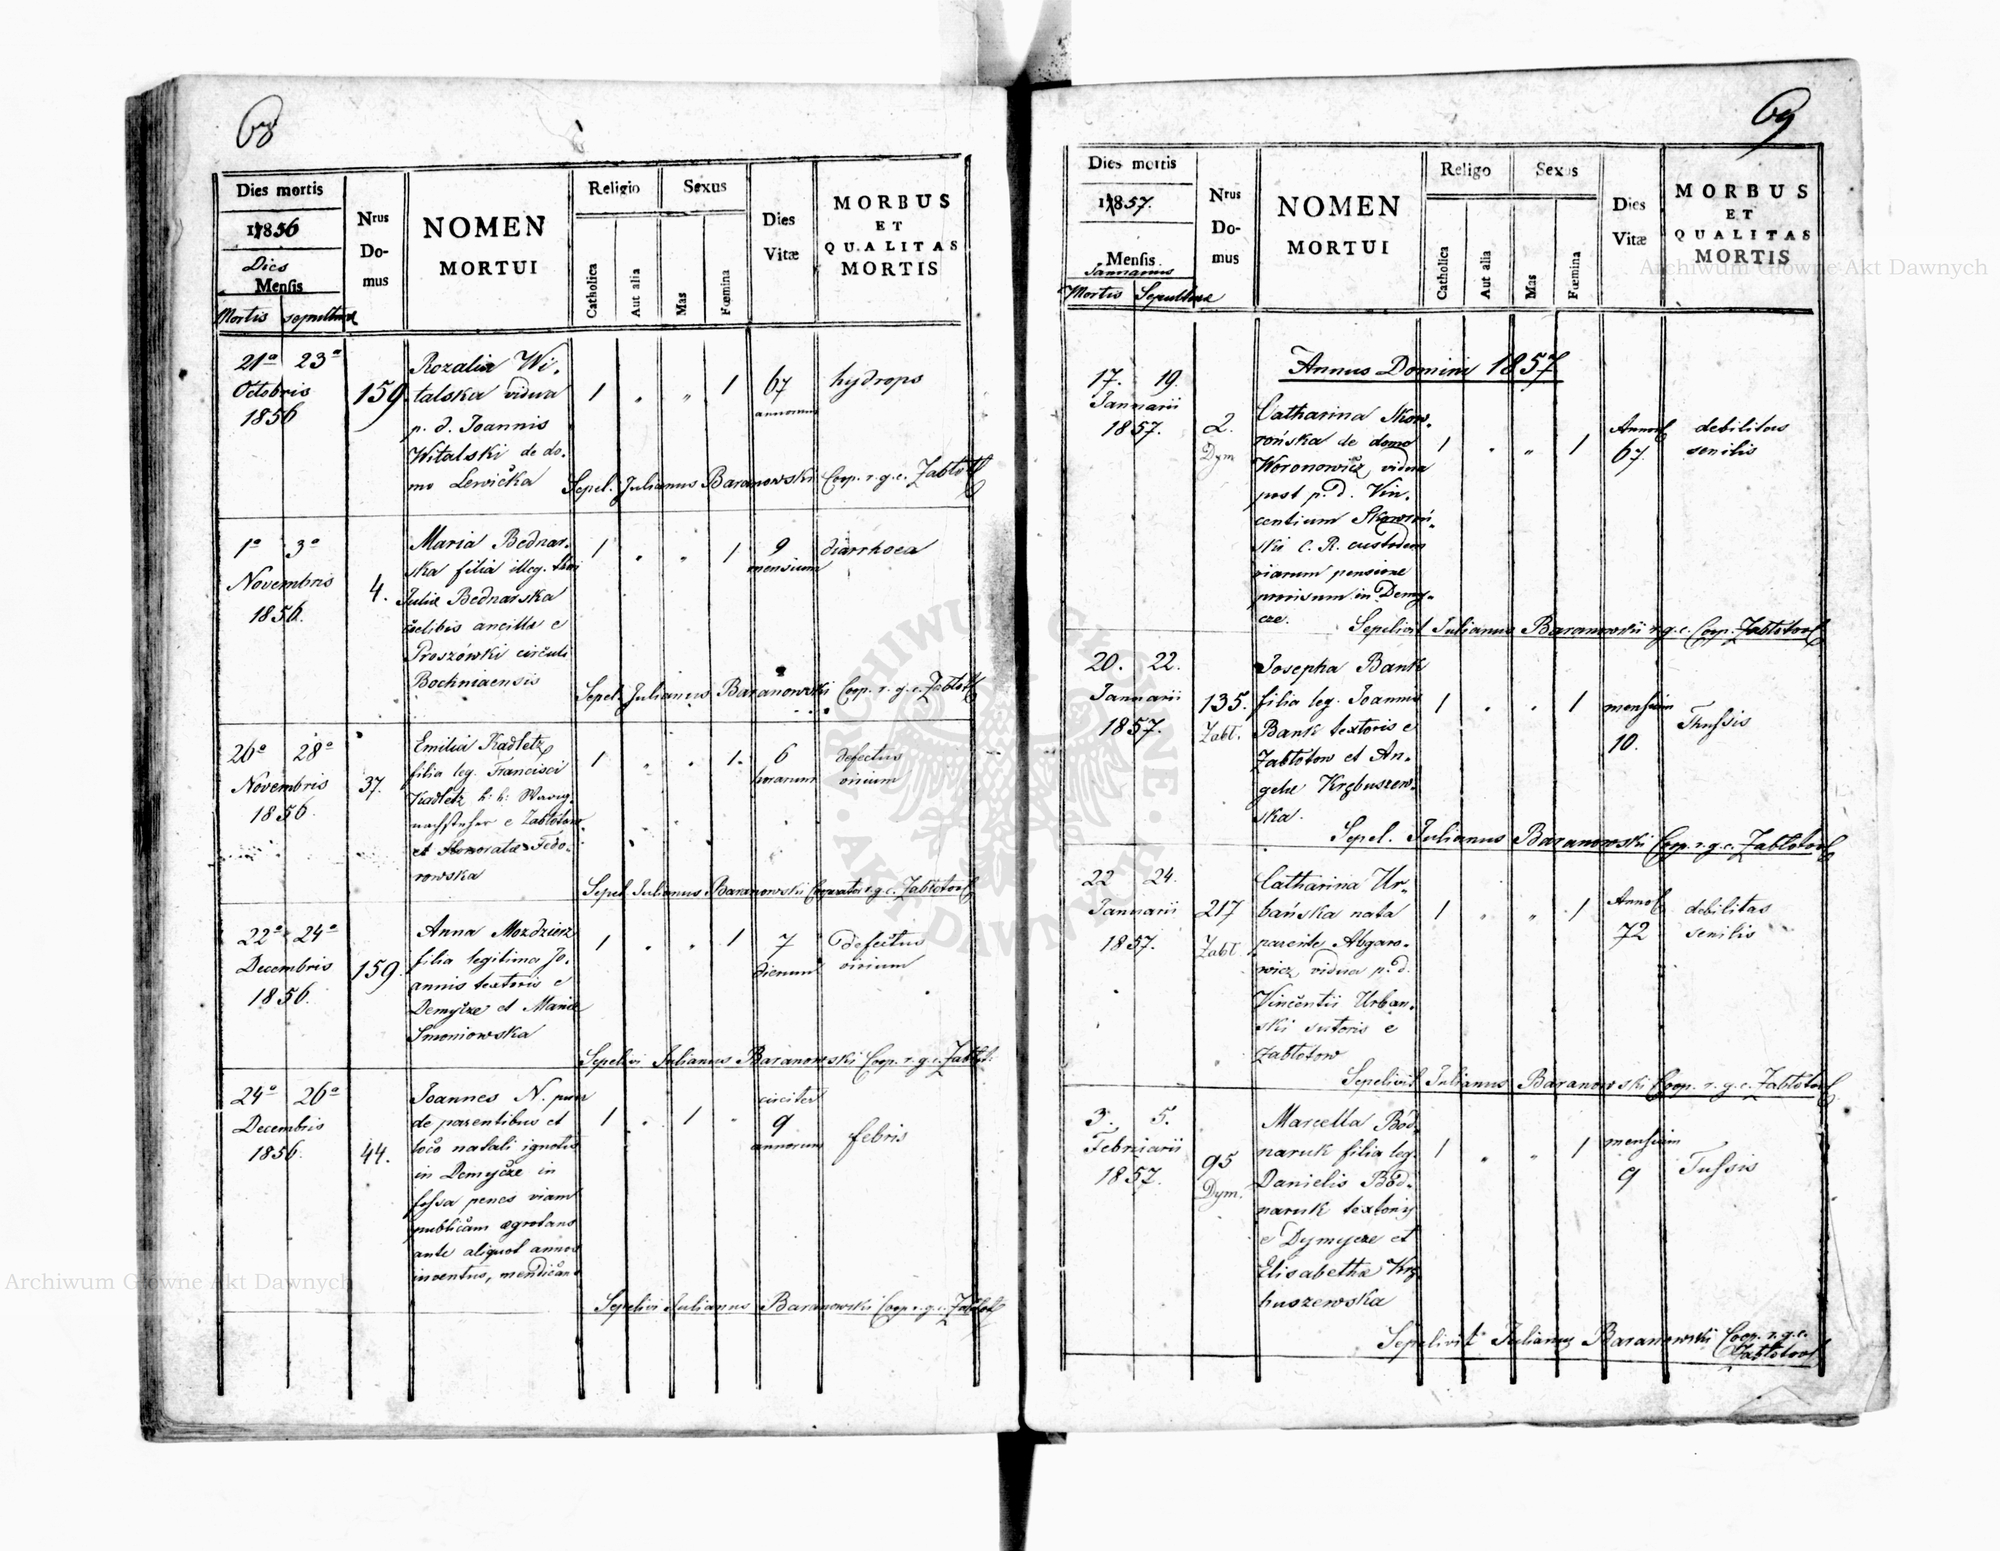 68
Dies mortis
1856
Dies
Mensis
Mortis sepulturæ
Nrus
Do-
mus
NOMEN
MORTUI
Religio
Catholica
Aut alia
Sexus
Mas
Fœmina
Dies
Vitæ
MORBUS
ET
QUALITAS
MORTIS
21ª 23ª
Octobris
1856
159
Rozalia Wi-
talska vidua
p. d. Joannis
Witalski de do-
mo Lewicka
1 " " 1
67
annorum
hydrops
Sepel. Julianus Baranowski Coop. r. g. c. Zabłot
1ª 3ª
Novembris
1856.
4.
Maria Bednar-
ska filia illeg. thori
Juliæ Bednarska
cœlibis ancilla e
Proszówki circuli
Bochniaensis
1 " " 1
9
mensium
diarrhoea
Sepel. Julianus Baranowski Coop. r. g. c. Zabłot
26ª 28ª
Novembris
1856.
37.
Emilia Kadletz
filia leg. Francisci
Kadletz k. k.
e Zabłotow
et Honoratæ Fedo-
rowska
1 " " 1.
6
horarum
defectus
virium
Sepel. Julianus Baranowski Cooperator r. g. c. Zabłotow
22ª 24ª
Decembris
1856.
159.
Anna Mozdzierz
filia legitima Jo-
annis textoris e
Demycze et Mariæ
Smoniowska
1 " " 1
7
dierum
defectus
virium
Sepelivi Julianus Baranowski Coop. r. g. c. Zabłot.
24ª 26ª
Decembris
1856.
44.
Joannes N. puer
de parentibus et
loco natali ignotis
in Demycze in
fossa penes viam
publicam ægrotans
ante aliquot annos
inventus, mendicans
1 " 1 "
circiter
9
annorum
febris
Sepelivi Julianus Baranowski Coop. r. g. c. Zabłot
69
Dies mortis
1857.
Mensis
Januarius
Mortis Sepulturæ
Nrus
Do-
mus
NOMEN
MORTUI
Religo
Catholica
Aut alia
Sexus
Mas
Fœmina
Dies
Vitæ
MORBUS
ET
QUALITAS
MORTIS
Annus Domini 1857
17. 19.
Januarii
1857.
2.
Dym
Catharina Skow-
rońska de domo
Woronowicz vidua
post p. d. Vin-
centium Skowroń-
ski C. R. custodem
viarum pensione
provisum in Demy-
cze.
1 " " 1
Annor
67
debilitas
senilis
Sepelivit Julianus Baranowski r. g. c. Coop. Zabłotow
20. 22.
Januarii
1857.
135.
Zabł.
Josepha Bank
filia leg. Joannis
Bank textoris e
Zabłotow et An-
gelæ Krębuszew-
ska.
1 " " 1
mensium
10.
Thussis
Sepel. Julianus Baranowski Coop. r. g. c. Zabłotow
22 24.
Januarii
1857.
217
Zabł.
Catharina Ur-
bańska nata
parente Abgaro-
wicz vidua p. d.
Vincentii Urban-
ski sutoris e
Zabłotow
1 " " 1
Annor
72
debilitas
senilis
Sepelivit Julianus Baranowski Coop. r. g. c. Zabłotow
3. 5.
Februarii
1857.
95
Dym.
Marcella Bod-
naruk filia leg.
Danielis Bod-
naruk textoris
e Dymycze et
Elisabethæ Krę
buszewska
1 " " 1
mensium
9
Tussis
Sepelivit Julianus Baranowski Coop. r. g. c.
Zabłotow
Archiwum Główne Akt Dawnych
Archiwum Główne Akt Dawnych
ARCHIWUM GŁÓWNE AKT DAWNYCH